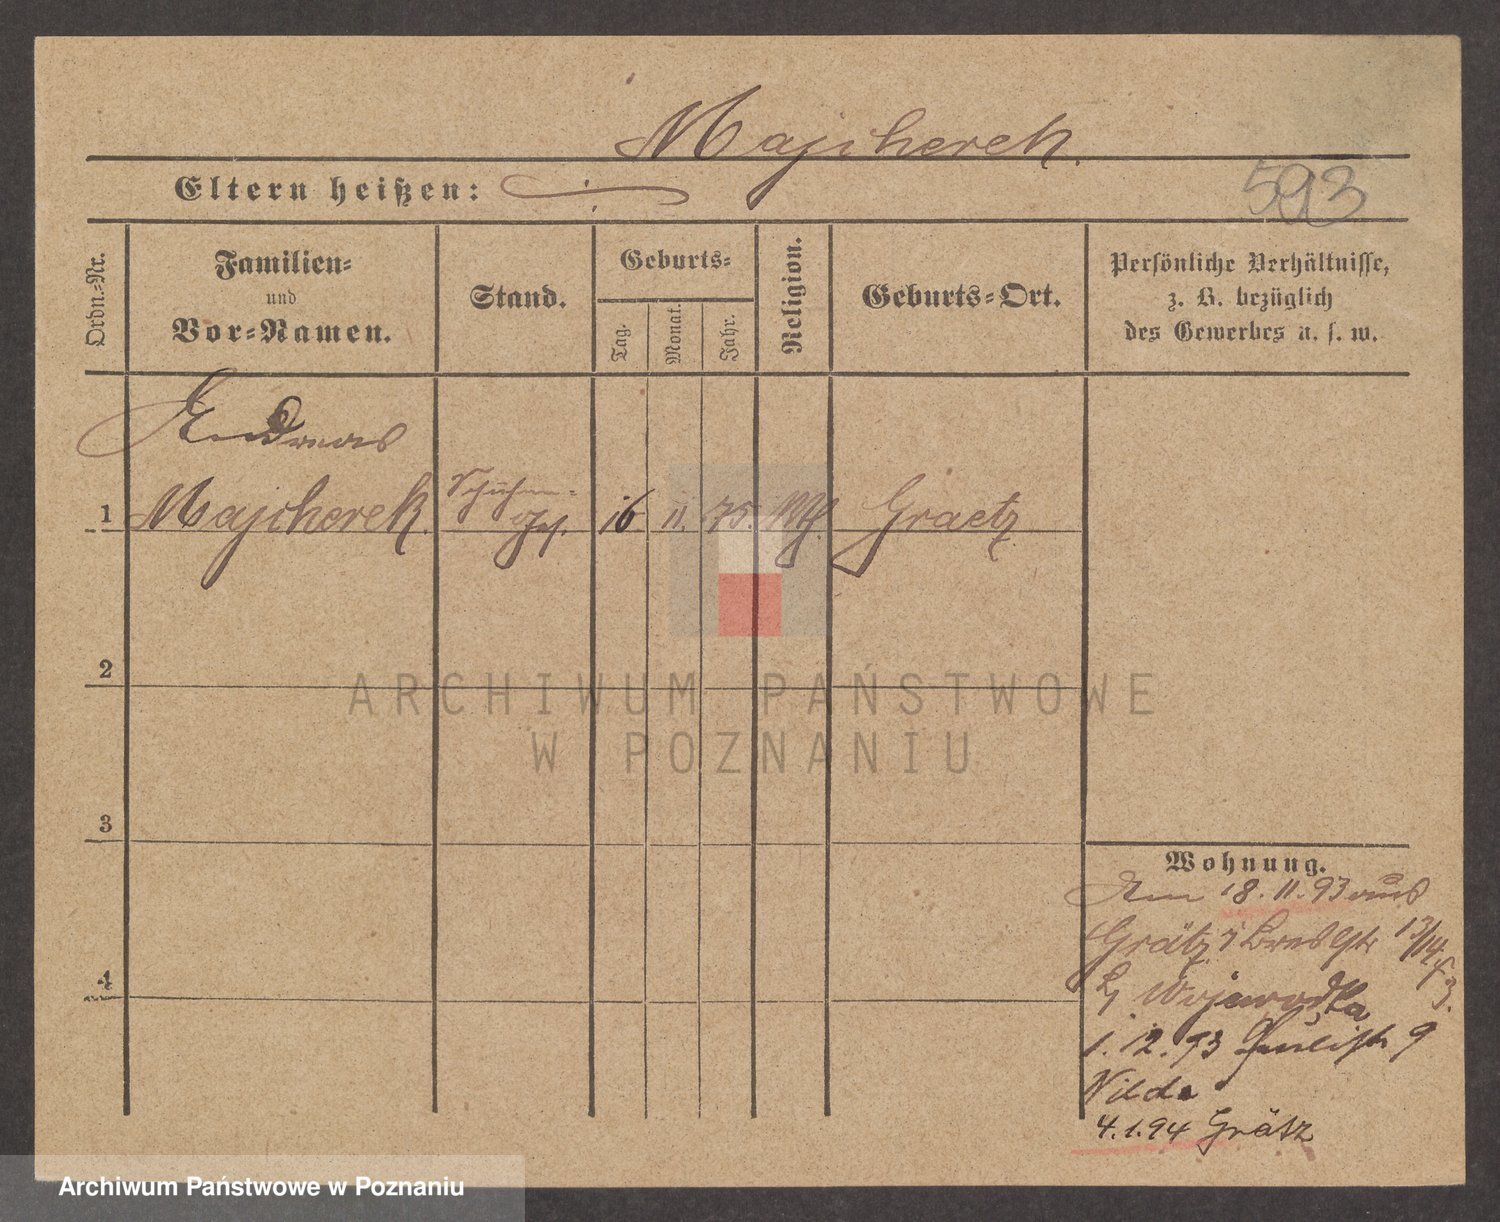 Majcherek.
Eltern heißen:
593
Ordn.-Nr.
Familien-
und
Vor-Namen.
Stand.
Geburts-
Tag.
Monat.
Jahr.
Religion.
Geburts-Ort.
Persönliche Verhältnisse,
z. B. bezüglich
des Gewerbes u. s. w.
Andreas
1 Majcherek. Schuhm- 16 11. 75. Graetz
Ges.
2
3
4
Wohnung.
Am 18.11.93 aus
Grätz Bresl Str 13/14
Wojewodka
1.12.93 9
Wilda
4.1.94 Grätz
ARCHIWUM PAŃSTWOWE
W POZNANIU
Archiwum Państwowe w Poznaniu